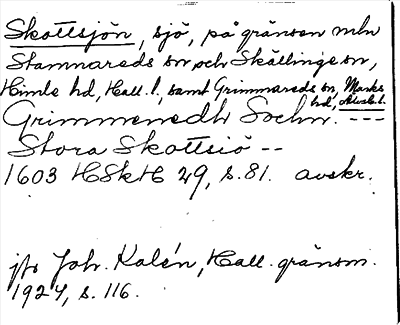 Skottsjön, sjö, på gränsen mln
Stamnareds sn och Skällinge sn,
Himle hd, Hall. l., samt Grimmareds sn, Marks
hd, Älvsb. l.
Grimmeredh Sochn. ---
Stora Skottsiö --
1603 HSkH 29, s. 81. avskr.
jfr Joh. Kalén, Hall. gränsm.
1924, s. 116.